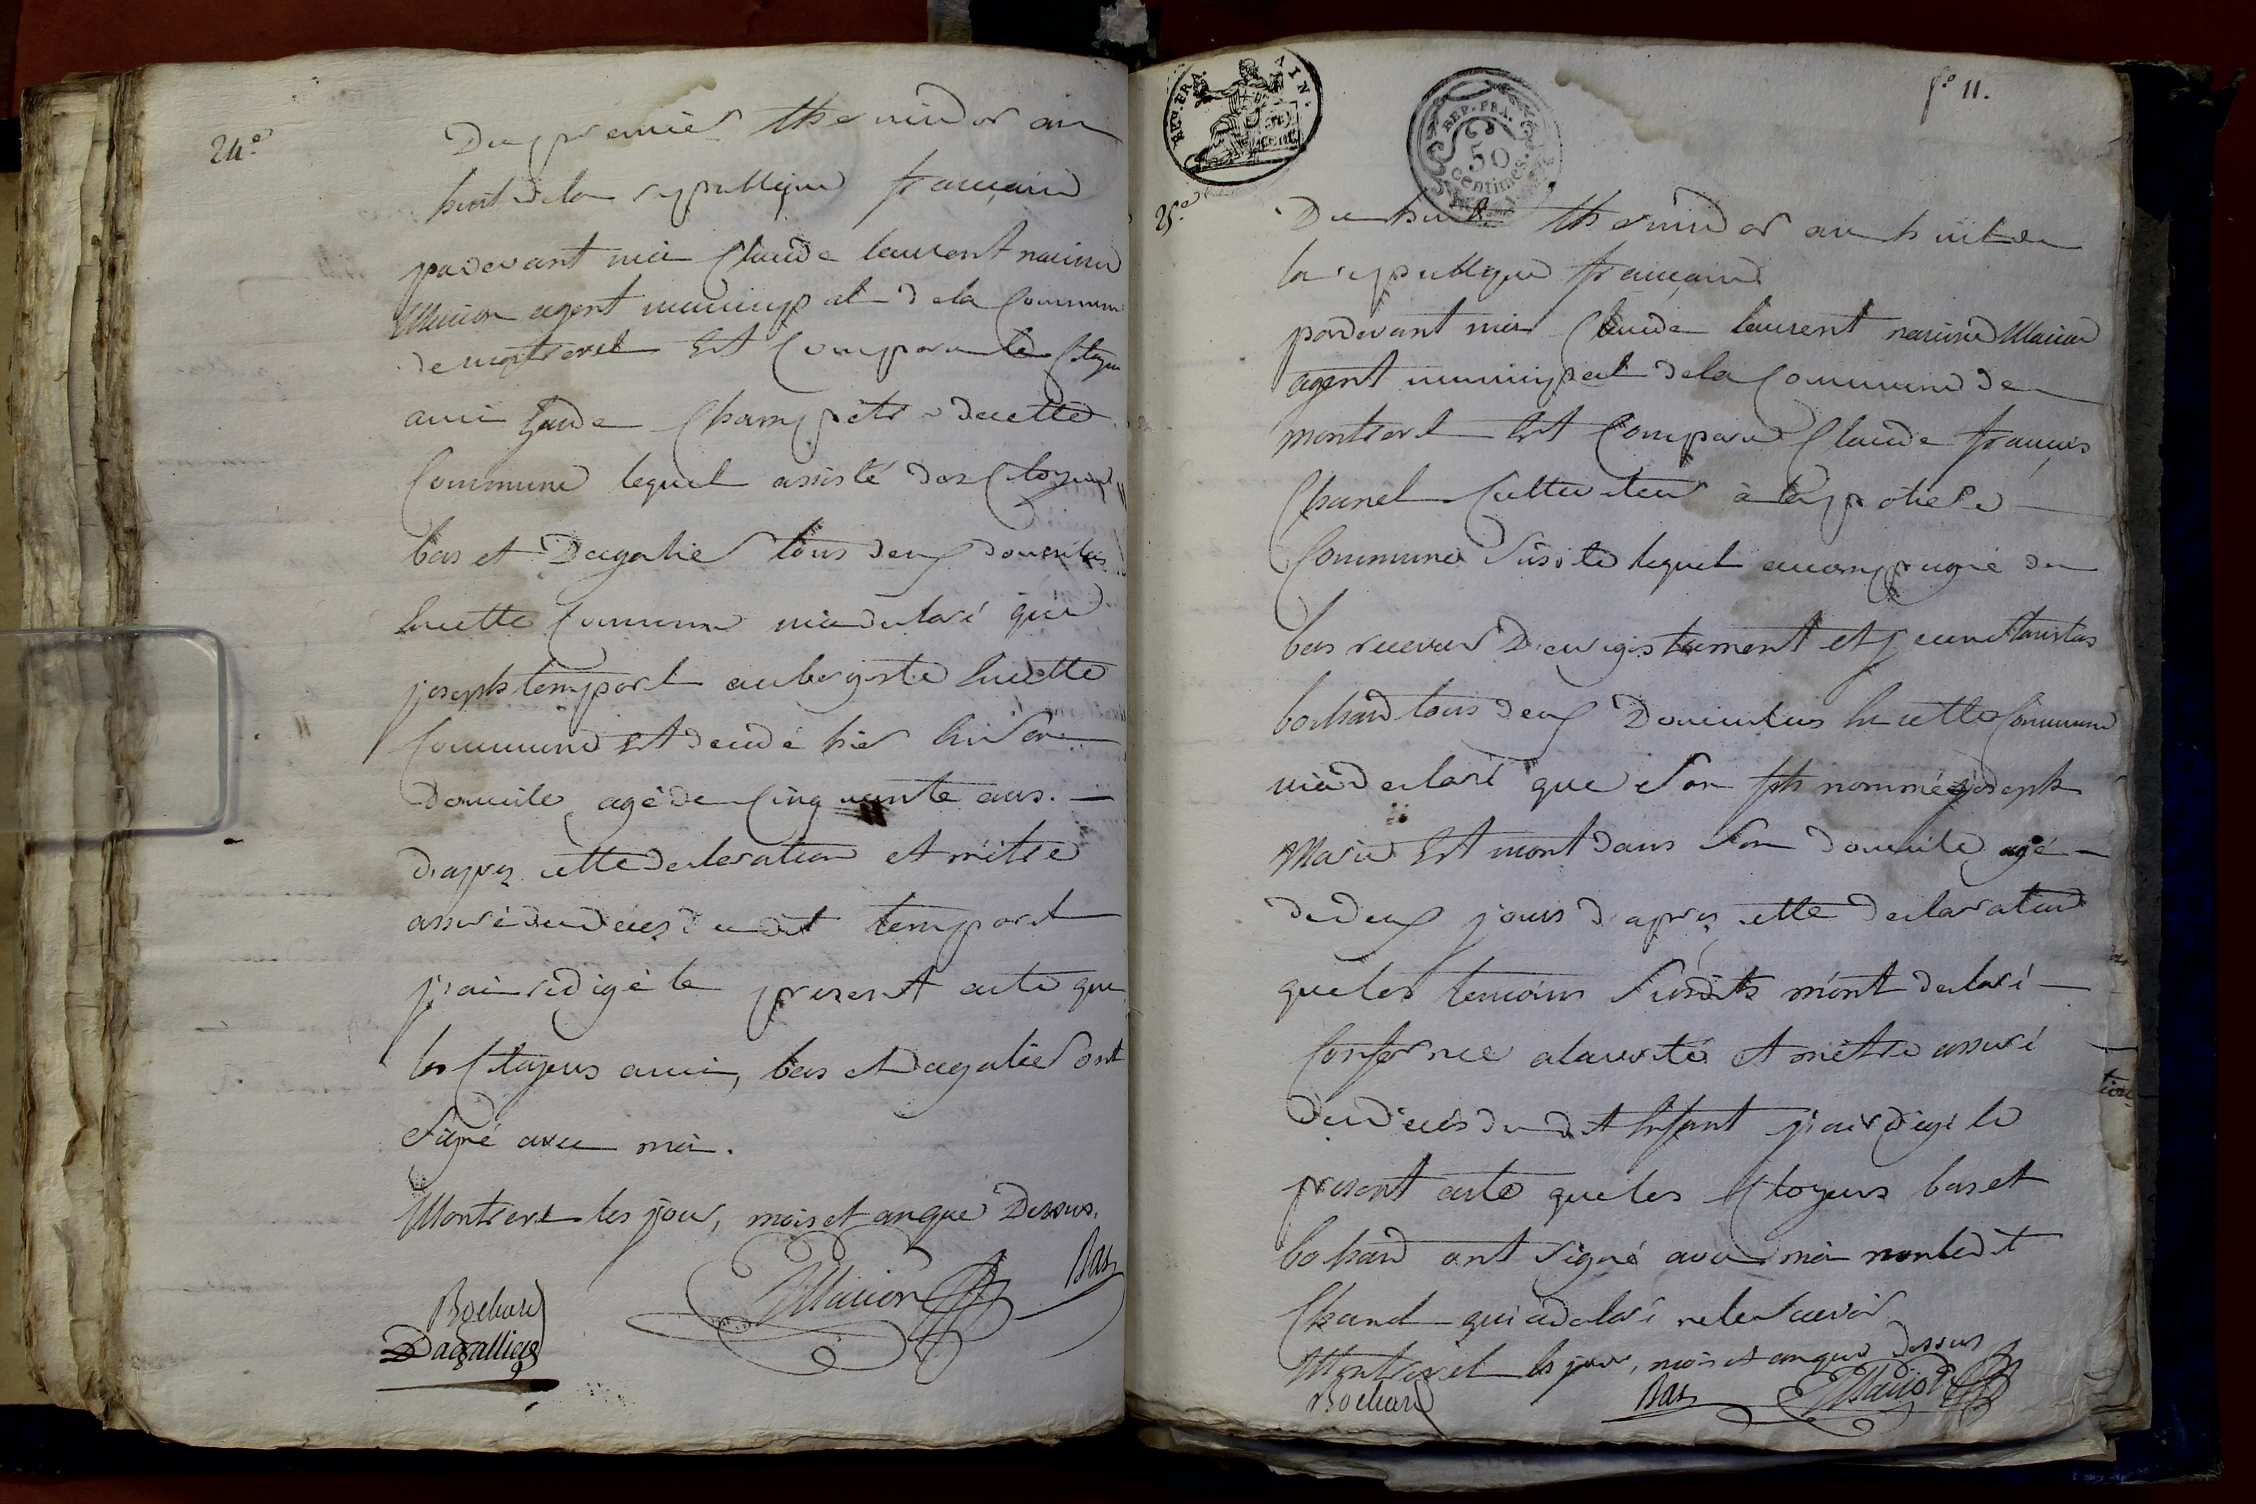 24.e
Du premier thermidor an
huit de la republique françaire
pardevant moi Claude laurent
Marion agent municipal de la Commune
de montrevel Est Comparu le Citoyen
amii garde Champêtre decette
Commune lequel assisté des Citoyens
bas et Dagalier tous deux domicilies
En cette Commune m'a declaré que
joseph temporel aubergiste En cette
Commune Est decedé hier En Son
domicile, agé de Cinquante ans. —
d'apres cette declaration et m'être
assuré du deces dudit temporel
j'ai redigé le present acte que
les Citoyens amii, bas et Dagalier ont
Signé avec moi.
Montrevel les jour, mois et an que Dessus.
Bochard
Marion
Bas
Dagallier
REP. FRA. AIN.
REP. FRA. 50 centimes.
f.o 11.
25.e
Du huit thermidor an huit de
la republique françaire
pardevant moi Claude laurent Marion
agent municipal de la Commune de
montrevel Est Comparu Claude françois
Chanel Cultivateur à
Commune Susdite lequel accompagné de
bas receveur D'enregistrement et jean
bochard tous deux Domicilies En cette Commune
m'a declaré que Son fils nommé joseph
Marie Est mort dans Son domicile agé —
de deux jours d'apres cette declaration
que les temoins Susdits m'ont declaré —
Conforme a la verité et m'être assuré
du décès dudit Enfant j'ai redigé le
present acte que les Citoyens bas et
bochard ont Signé avec moi non ledit
Chanel qui a declaré ne le Savoir
Montrevel les jour, mois et an que dessus
Bochard
Bas
Marion